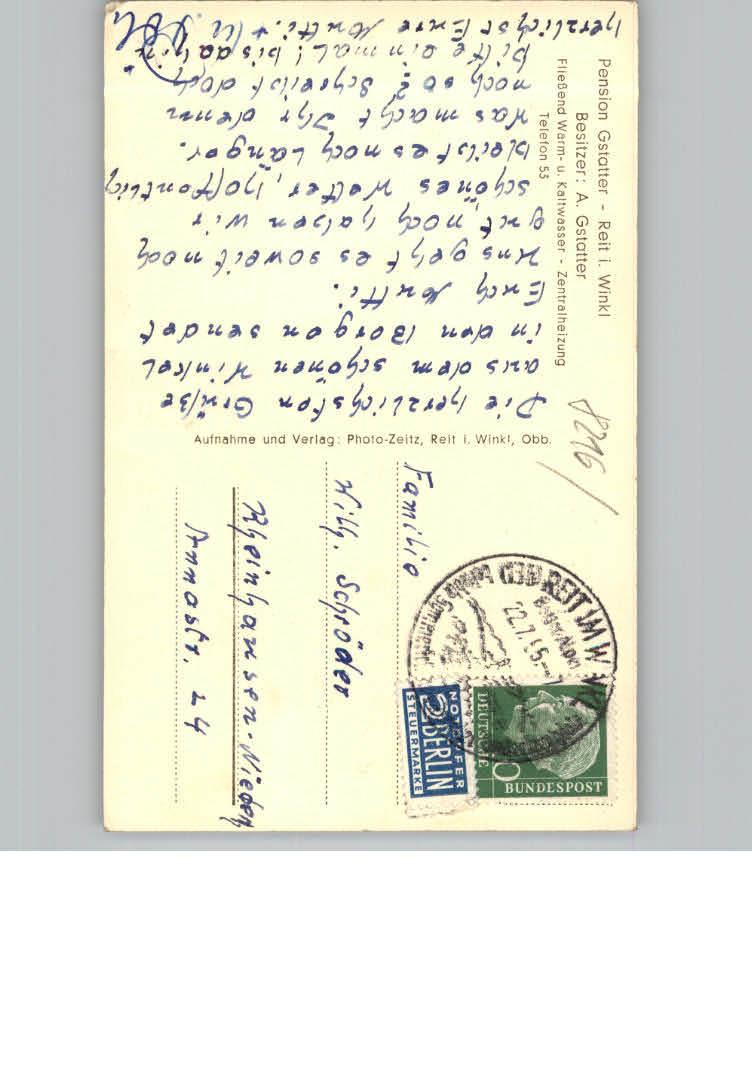 Pension Gstatter - Reit i. Winkl
Besitzer: A. Gstatter
Fließend Warm- u. Kaltwasser - Zentralheizung
Telefon 53
Die herzlichsten Grüße
aus dem schönen Winkel
in den Bergen sendet
Euch Mutti.
Uns geht es soweit noch
gut, noch haben wir
schönes Wetter, hoffentlich
bleibt es noch länger.
Was macht Ihr denn
noch so? Schreibt doch
bitte einmal! bis dahin
herzlichst Eure Mutti. +
Aufnahme und Verlag: Photo-Zeitz, Reit i. Winkl, Obb.
8216/
Familie
Willi. Schröder
Rheinhausen-Niederh
Annastr. 24
REIT IM WINKL
22.7.55
NOTOPFER
2 BERLIN
STEUERMARKE
DEUTSCHE
BUNDESPOST